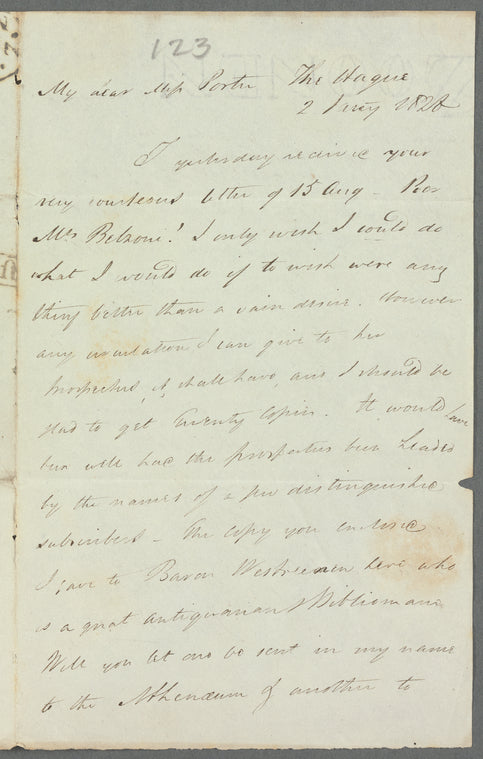 123
My dear Miss Porter The Hague
2 1828
I yesterday received your
very courteous letter of 15 Aug – Poor
Mrs Belzoni! I only wish I could do
what I would do if to wish were any
thing better than a vain desire. However
any circulation I can give to her
Prospectus, it shall have, and I should be
glad to get twenty Copies. It would have
been well had the prospectus been headed
by the names of a few distinguished
subscribers – The Copy you enclosed
I gave to Baron Westreenen here who
is a great antiquarian & Bibliomane
Will you let one be sent in my name
to the Athenæum & another to